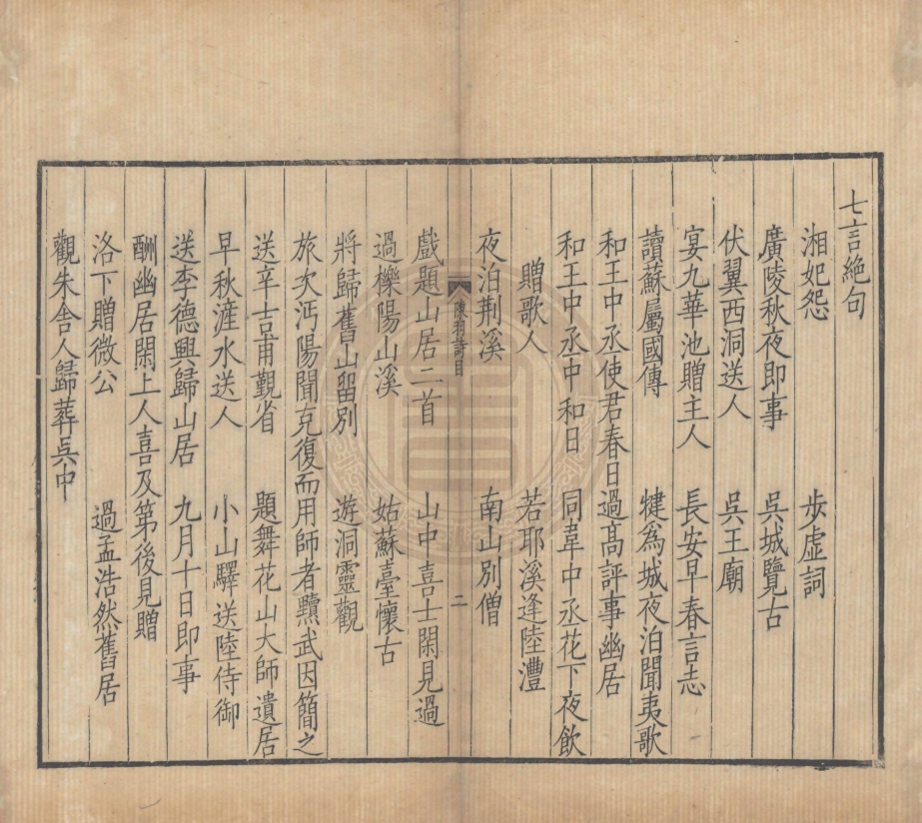 七言絶句
湘妃怨 步虛詞
廣陵秋夜即事 吳城覽古
伏翼西洞送人 吳王廟
宴九華池贈主人 長安早春言志
讀蘇屬國傳 犍為城夜泊聞夷歌
和王中丞使君春日過高評事幽居
和王中丞中和日 同韋中丞花下夜飲
贈歌人 若耶溪逢陸澧
夜泊荆溪 南山別僧
陳羽詩目 二
戲題山居二首 山中喜士閑見過
過櫟陽山溪 姑蘇臺懷古
將歸舊山留別 遊洞靈觀
旅次沔陽聞克復而用師者黷武因簡之
送辛吉甫覲省 題舞花山大師遺居
早秋滻水送人 小山驛送陸侍御
送李德興歸山居 九月十日即事
酬幽居閑上人喜及第後見贈
洛下贈微公 過孟浩然舊居
觀朱舍人歸葬吳中